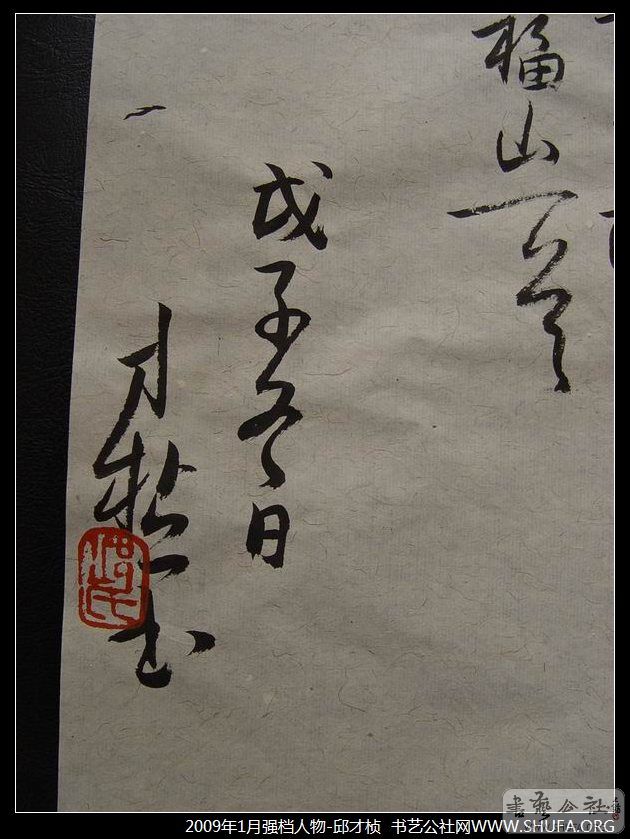 福山
戊子冬日
才桢书
书艺公社
2009年1月强档人物-邱才桢 书艺公社网WWW.SHUFA.ORG